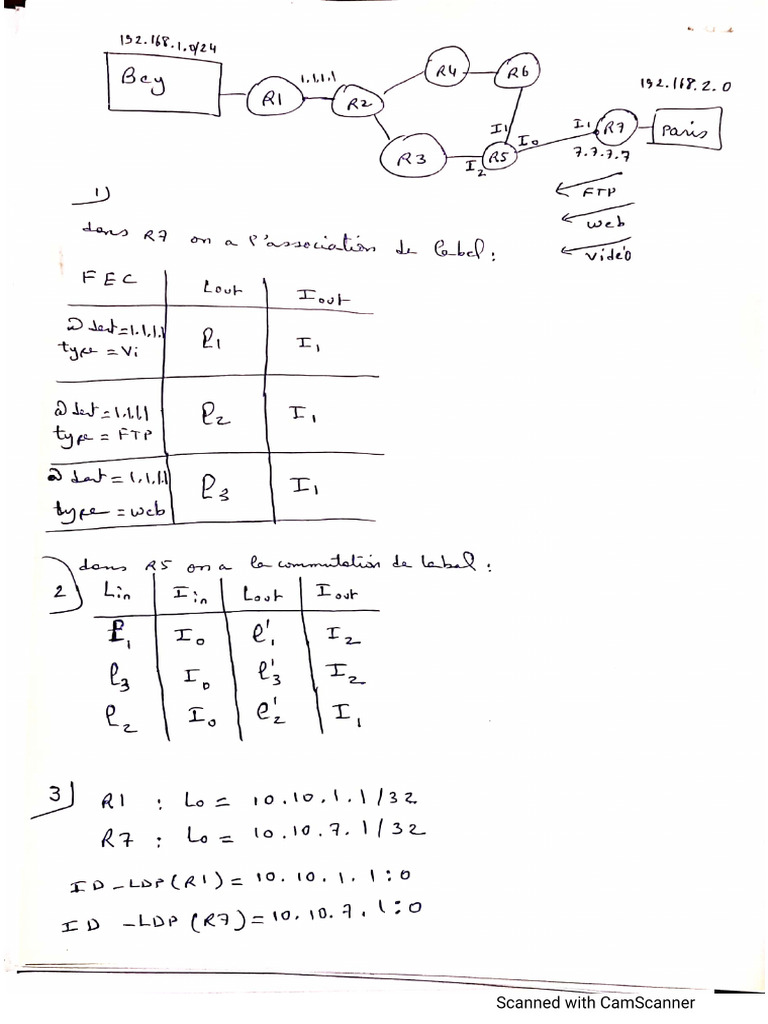 192.168.1.0/24
Bey
R1
1.1.1.1
R2
R4
R6
R3
R5
I1
I0
I2
I1
R7
7.7.7.7
192.168.2.0
Paris
FTP
Web
Vidéo
1)
dans R7 on a l'association de label :
FEC Lout Iout
@dest=1.1.1.1 l1 I1
type = Vi
@dest=1.1.1.1 l2 I1
type = FTP
@dest=1.1.1.1 l3 I1
type = web
2) dans R5 on a la commutation de label :
Lin Iin Lout Iout
l1 I0 l'1 I2
l3 I0 l'3 I2
l2 I0 l'2 I1
3) R1 : Lo = 10.10.1.1/32
R7 : Lo = 10.10.7.1/32
ID-LDP(R1) = 10.10.1.1:0
ID-LDP(R7) = 10.10.7.1:0
Scanned with CamScanner